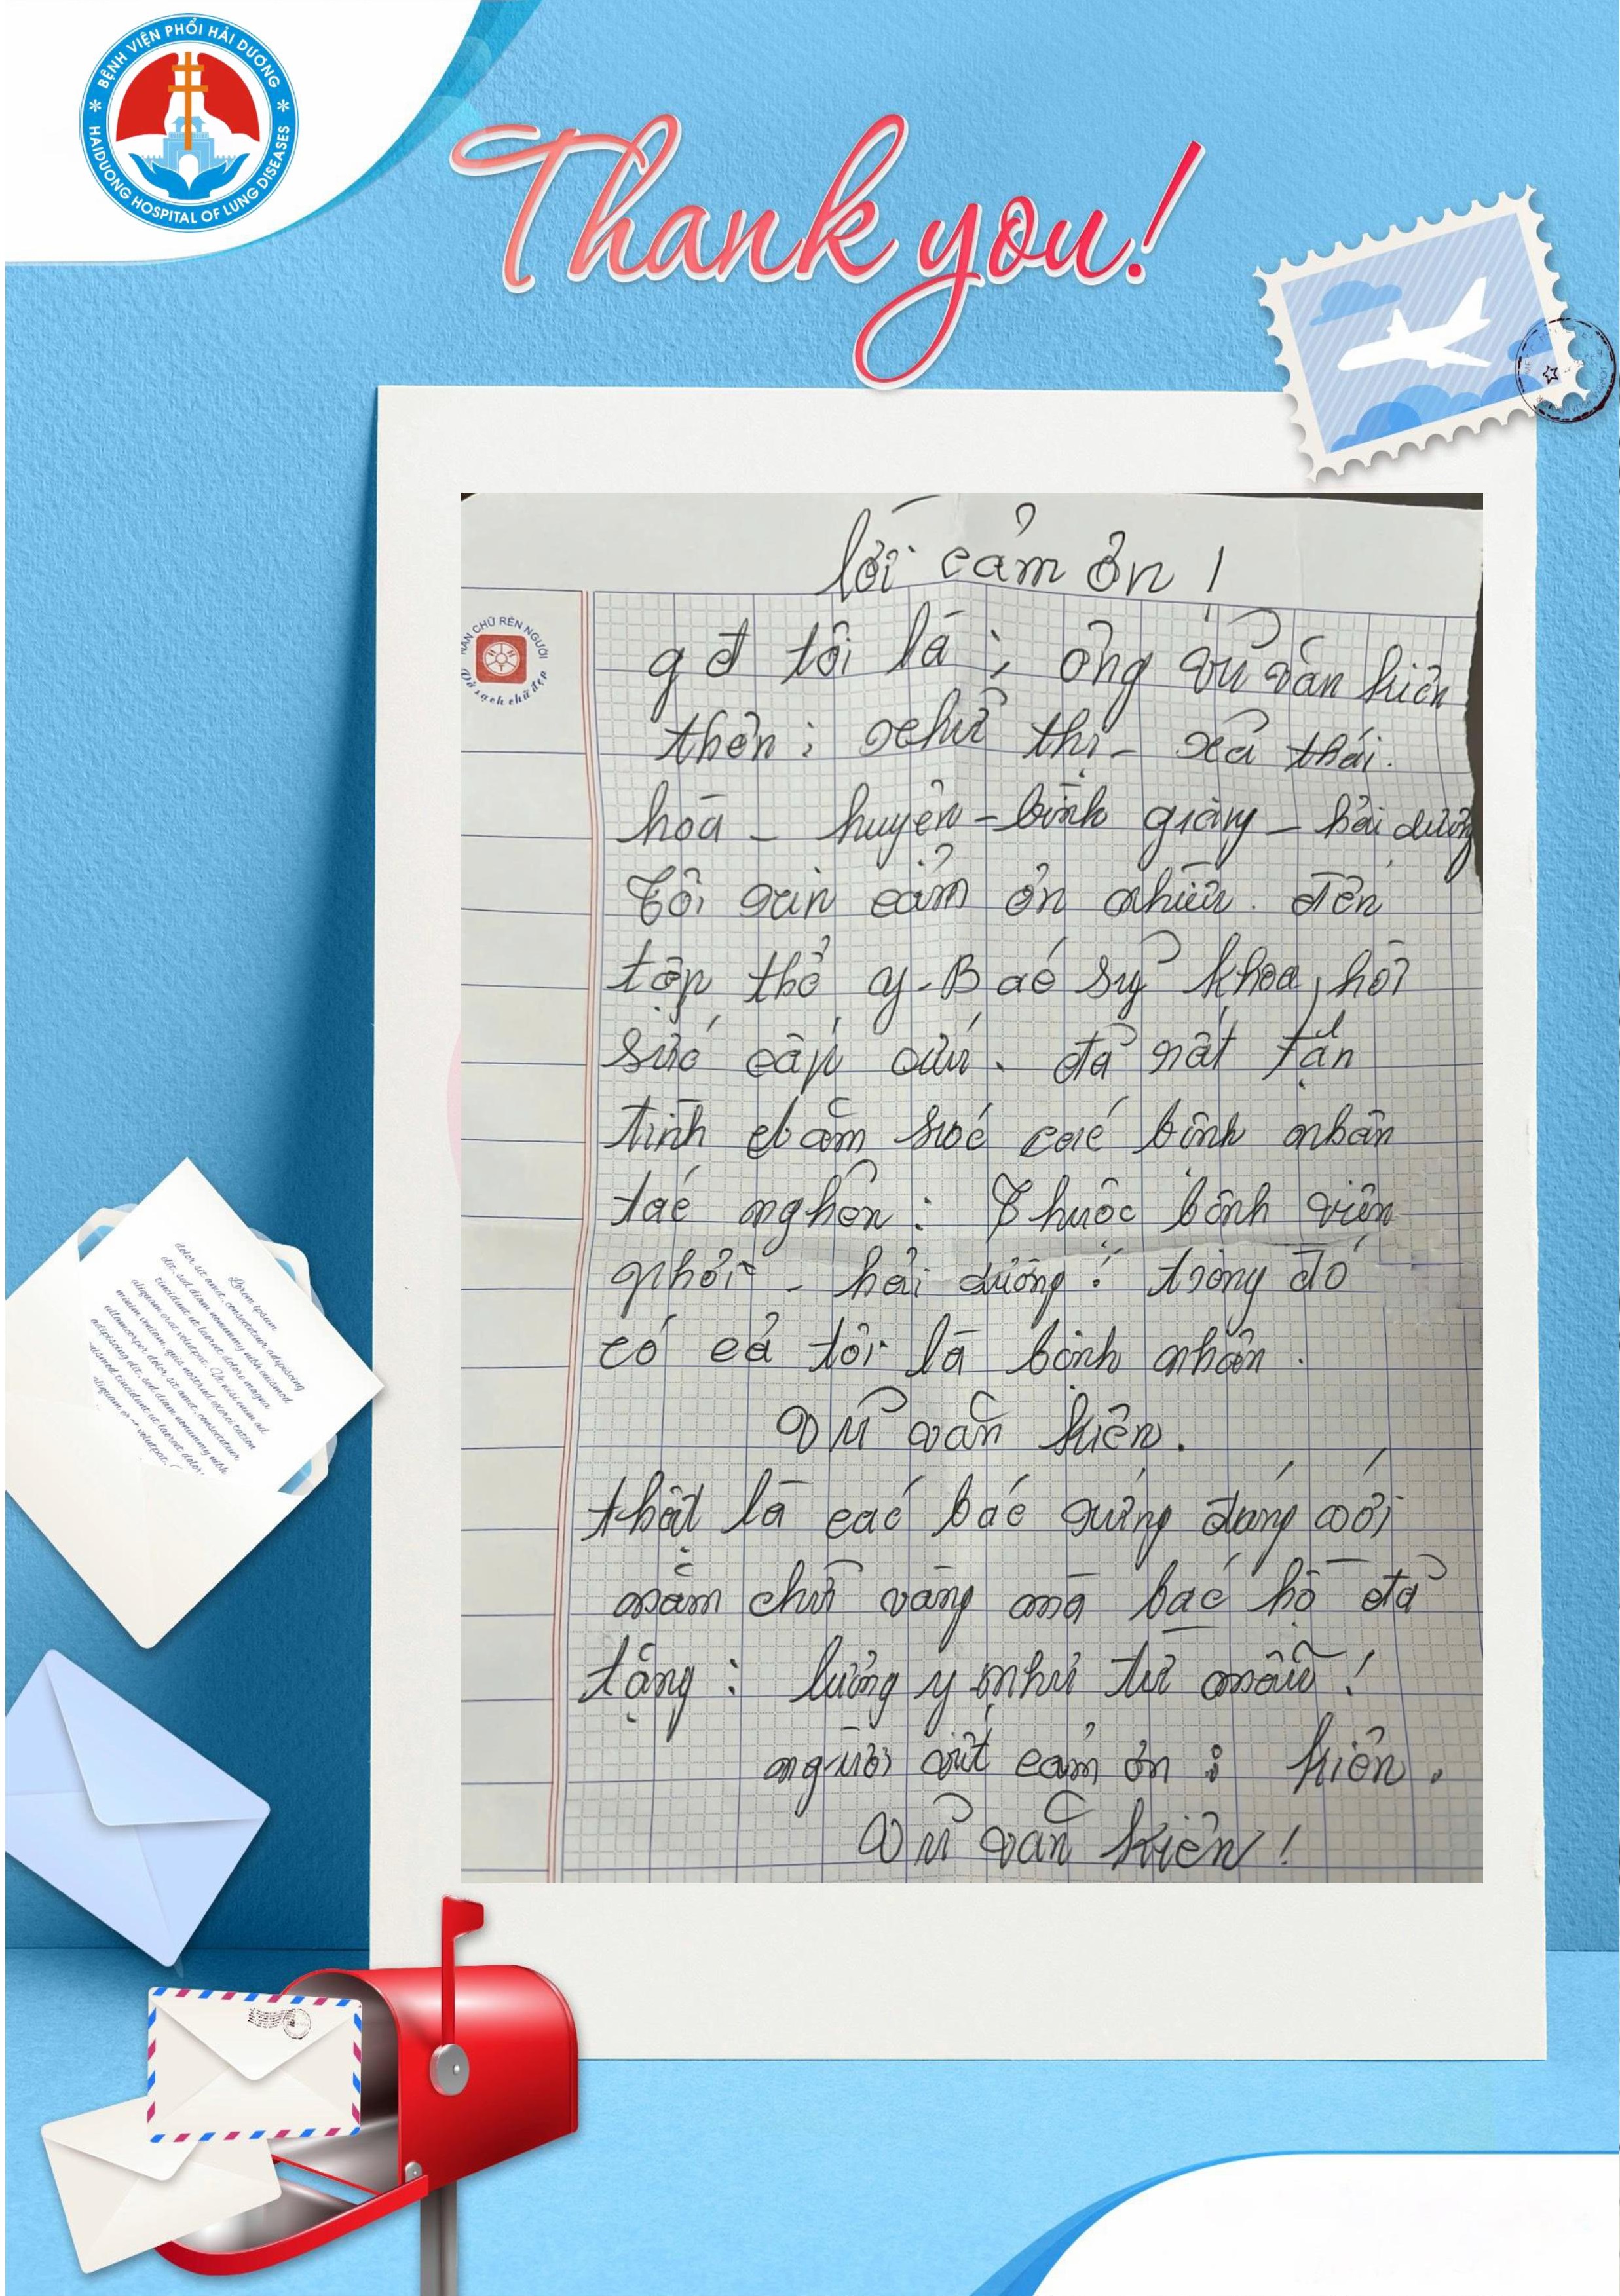 BỆNH VIỆN PHỔI HẢI DƯƠNG
HAIDUONG HOSPITAL OF LUNG DISEASES
Thank you!
lời cảm ơn !
NẮN CHỮ RÈN NGƯỜI
Vở sạch chữ đẹp
gđ tôi là ; ông vũ văn kiên
thôn : nhữ thị - xã thái.
hoà - huyện - bình giang - hải dương
Tôi xin cảm ơn nhiều. đến
tập thể y-Bác sỹ khoa, hồi
sức cấp cứu. đã rất tận
tình chăm sóc các bệnh nhân
tắc nghẽn : Thuộc bệnh viện
phổi - hải dương : trong đó
có cả tôi là bệnh nhân.
Vũ văn kiên.
thật là các bác xứng đáng với
năm chữ vàng mà bác hồ đã
tặng : lương y như từ mẫu !
người viết cảm ơn : kiên.
Vũ văn kiên !
Lorem ipsum
dolor sit amet, consectetuer adipiscing
elit, sed diam nonummy nibh euismod
tincidunt ut laoreet dolore magna
aliquam erat volutpat. Ut wisi enim ad
minim veniam, quis nostrud exerci tation
ullamcorper dolor sit amet, consectetuer
adipiscing elit, sed diam nonummy nibh
euismod tincidunt ut laoreet dolore
aliquam volutpat.